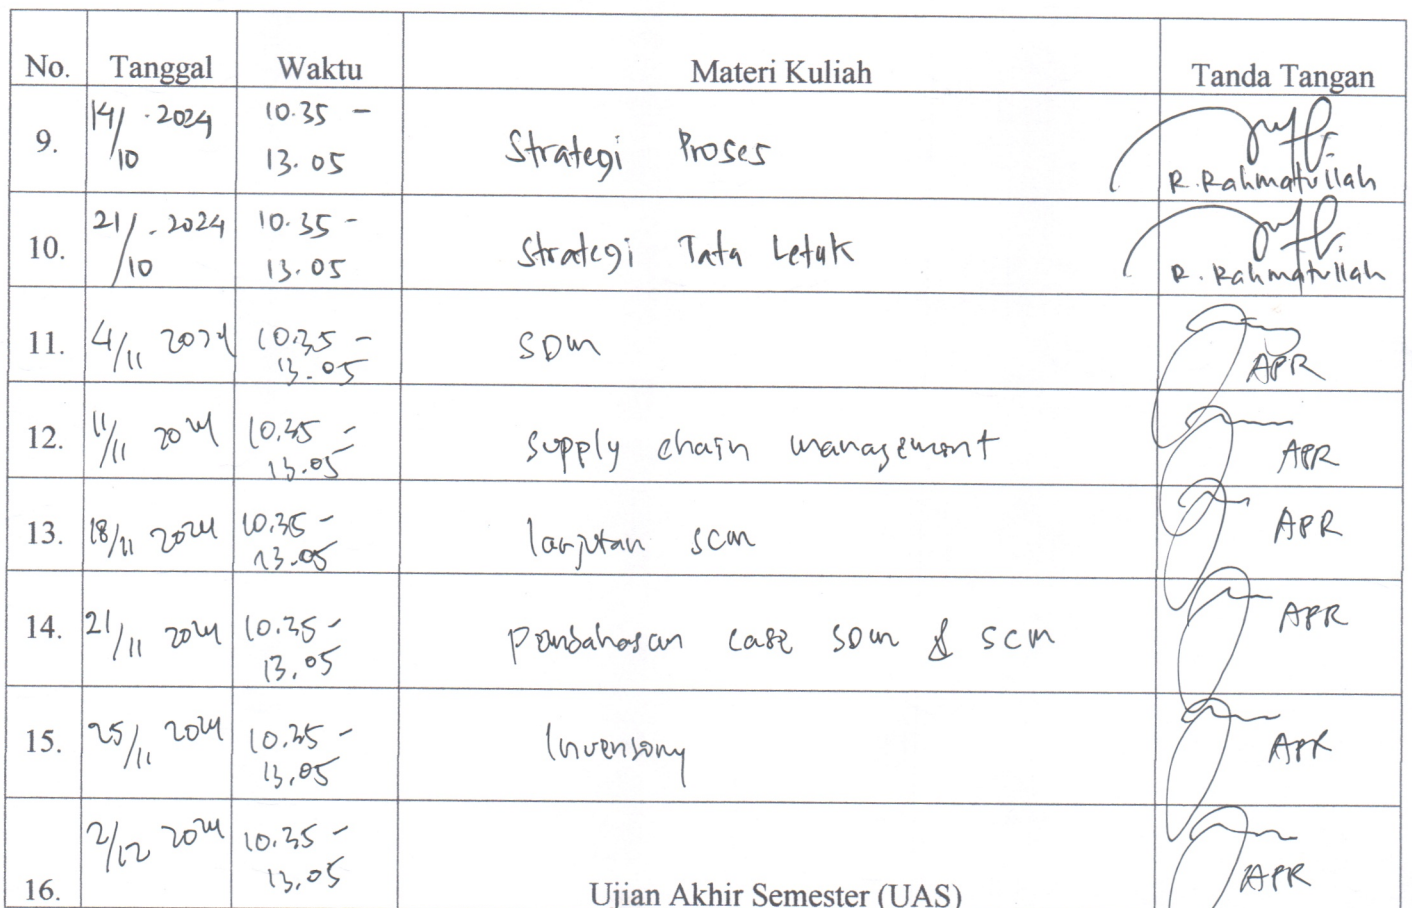 No. Tanggal Waktu Materi Kuliah Tanda Tangan
9. 14/10 . 2024 10.35 - 13.05 Strategi Proses R. Rahmatullah
10. 21/10 . 2024 10.35 - 13.05 Strategi Tata Letak R. Rahmatullah
11. 4/11 2024 10.35 - 13.05 SDM APR
12. 11/11 2024 10.35 - 13.05 Supply chain management APR
13. 18/11 2024 10.35 - 13.05 lanjutan SCM APR
14. 21/11 2024 10.35 - 13.05 Pembahasan case SDM & SCM APR
15. 25/11 2024 10.35 - 13.05 Inventory APR
16. 2/12 2024 10.35 - 13.05 Ujian Akhir Semester (UAS) APR